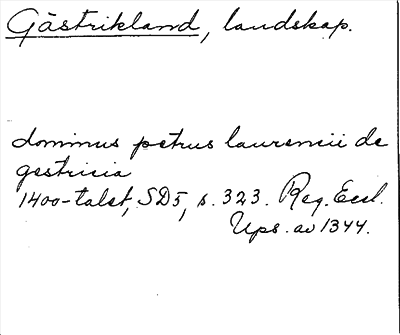 Gästrikland, landskap.
dominus petrus laurencii de
gestricia
1400-talet, SD5, s. 323. Reg. Eccl.
Ups. av 1344.